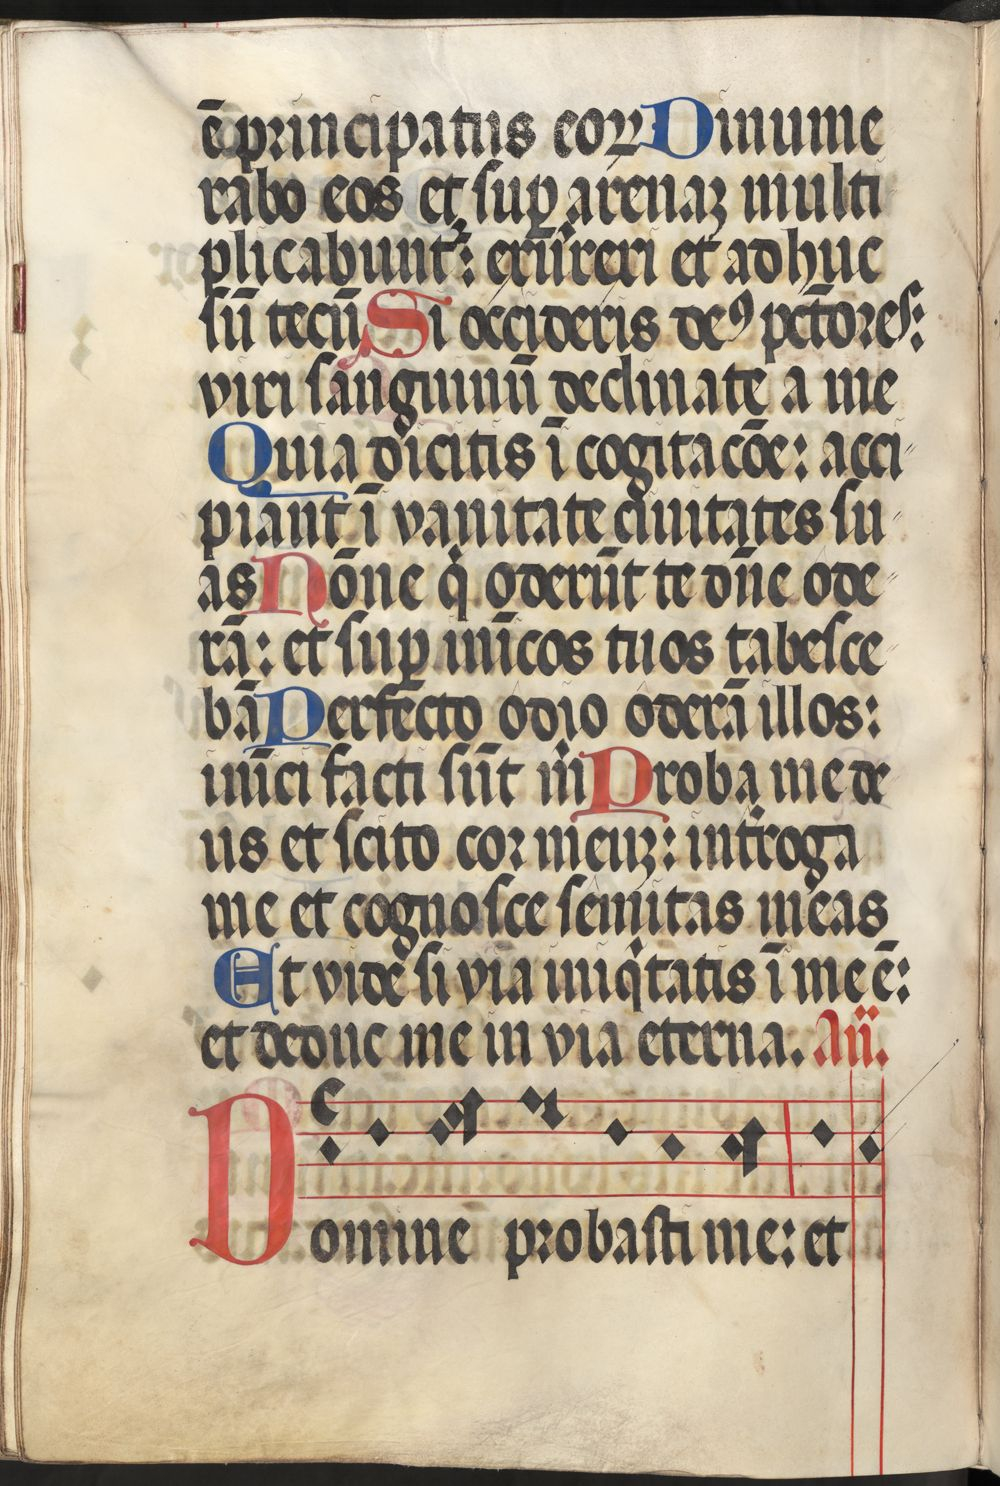 ē principatus eoꝝ Dinume
rabo eos et suꝑ arenaꝫ multi
plicabunt᷑: exurrexi et adhuc
sū tecū Si occideris deꝰ pctōres:
viri sanguinū declinate a me
Quia dicitis ī cogitacōe: acci
piant ī vanitate civitates su
as Nōne qͥ oderūt te dn̄e ode
rā: et suꝑ inīcos tuos tabesce
bā Perfecto odio oderā illos:
inīci facti sūt mͥ Proba me de
us et scito cor meuꝫ: intᷣroga
me et cognosce semitas meas
Et vide si via iniqͥtatis ī me ē:
et deduc me in via eterna. An̄.
Domine probasti me: et